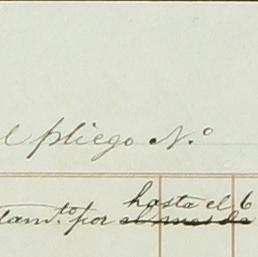 l pliego N.º
hasta el 6
tam.to por el mes de